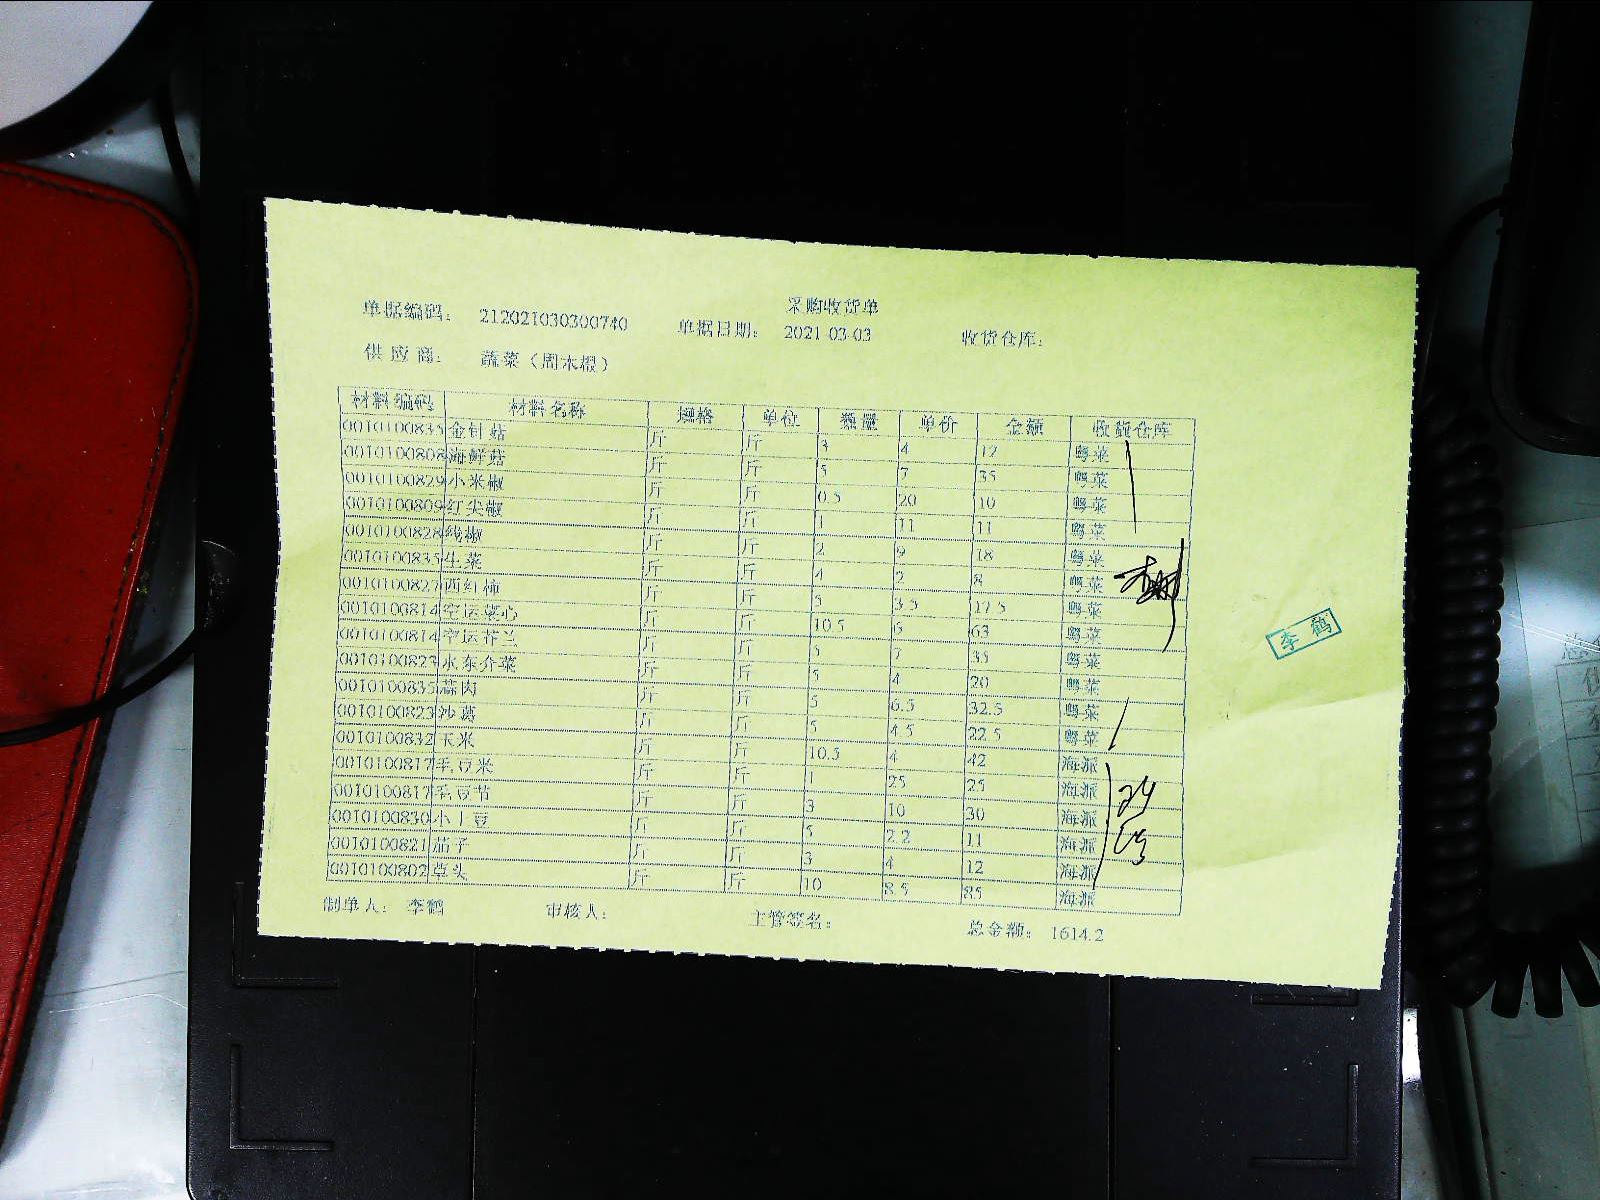 采购收货单
单据编码： 212021030300740 单据日期： 2021-03-03 收货仓库：
供 应 商： 蔬菜（周末橙）
材料编码 材料名称 规格 单位 数量 单价 金额 收货仓库
0010100835 金针菇 斤 斤 3 4 12 粤菜
0010100808 海鲜菇 斤 斤 5 7 35 粤菜
0010100829 小米椒 斤 斤 0.5 20 10 粤菜
0010100809 红尖椒 斤 斤 1 11 11 粤菜
0010100828 线椒 斤 斤 2 9 18 粤菜
0010100835 生菜 斤 斤 4 2 8 粤菜
0010100827 西红柿 斤 斤 5 3.5 17.5 粤菜
0010100814 空运菜心 斤 斤 10.5 6 63 粤菜
0010100814 空运芥兰 斤 斤 5 7 35 粤菜
0010100823 水东介菜 斤 斤 5 4 20 粤菜
0010100835 蒜肉 斤 斤 5 6.5 32.5 粤菜
0010100823 沙葛 斤 斤 5 4.5 22.5 粤菜
0010100832 玉米 斤 斤 10.5 4 42 海派
0010100817 毛豆米 斤 斤 1 25 25 海派
0010100817 毛豆节 斤 斤 3 10 30 海派
0010100830 小土豆 斤 斤 5 2.2 11 海派
0010100821 茄子 斤 斤 3 4 12 海派
0010100802 草头 斤 斤 10 8.5 85 海派
制单人： 李鹤 审核人： 主管签名： 总金额： 1614.2
李鹤